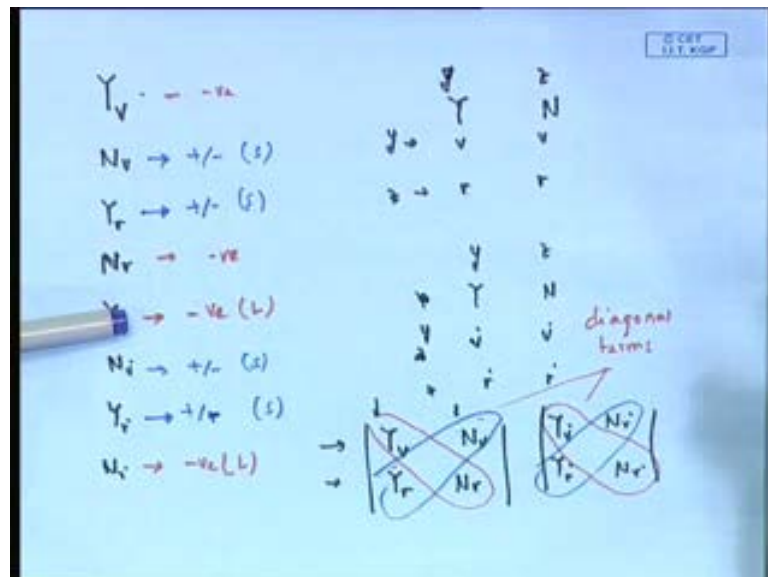 © CET
I.I.T. KGP
Y_v - -ve
N_v → +/- (s)
Y_r → +/- (s)
N_r → -ve
→ -ve (L)
N_v̇ → +/- (s)
Y_ṙ → +/- (s)
N_ṙ → -ve (L)
y z
Y N
y → v v
z → r r
y z
Y N
y v̇ v̇
ṙ ṙ
diagonal
terms
→ Y_v N_v Y_v̇ N_v̇
→ Y_r N_r Y_ṙ N_ṙ